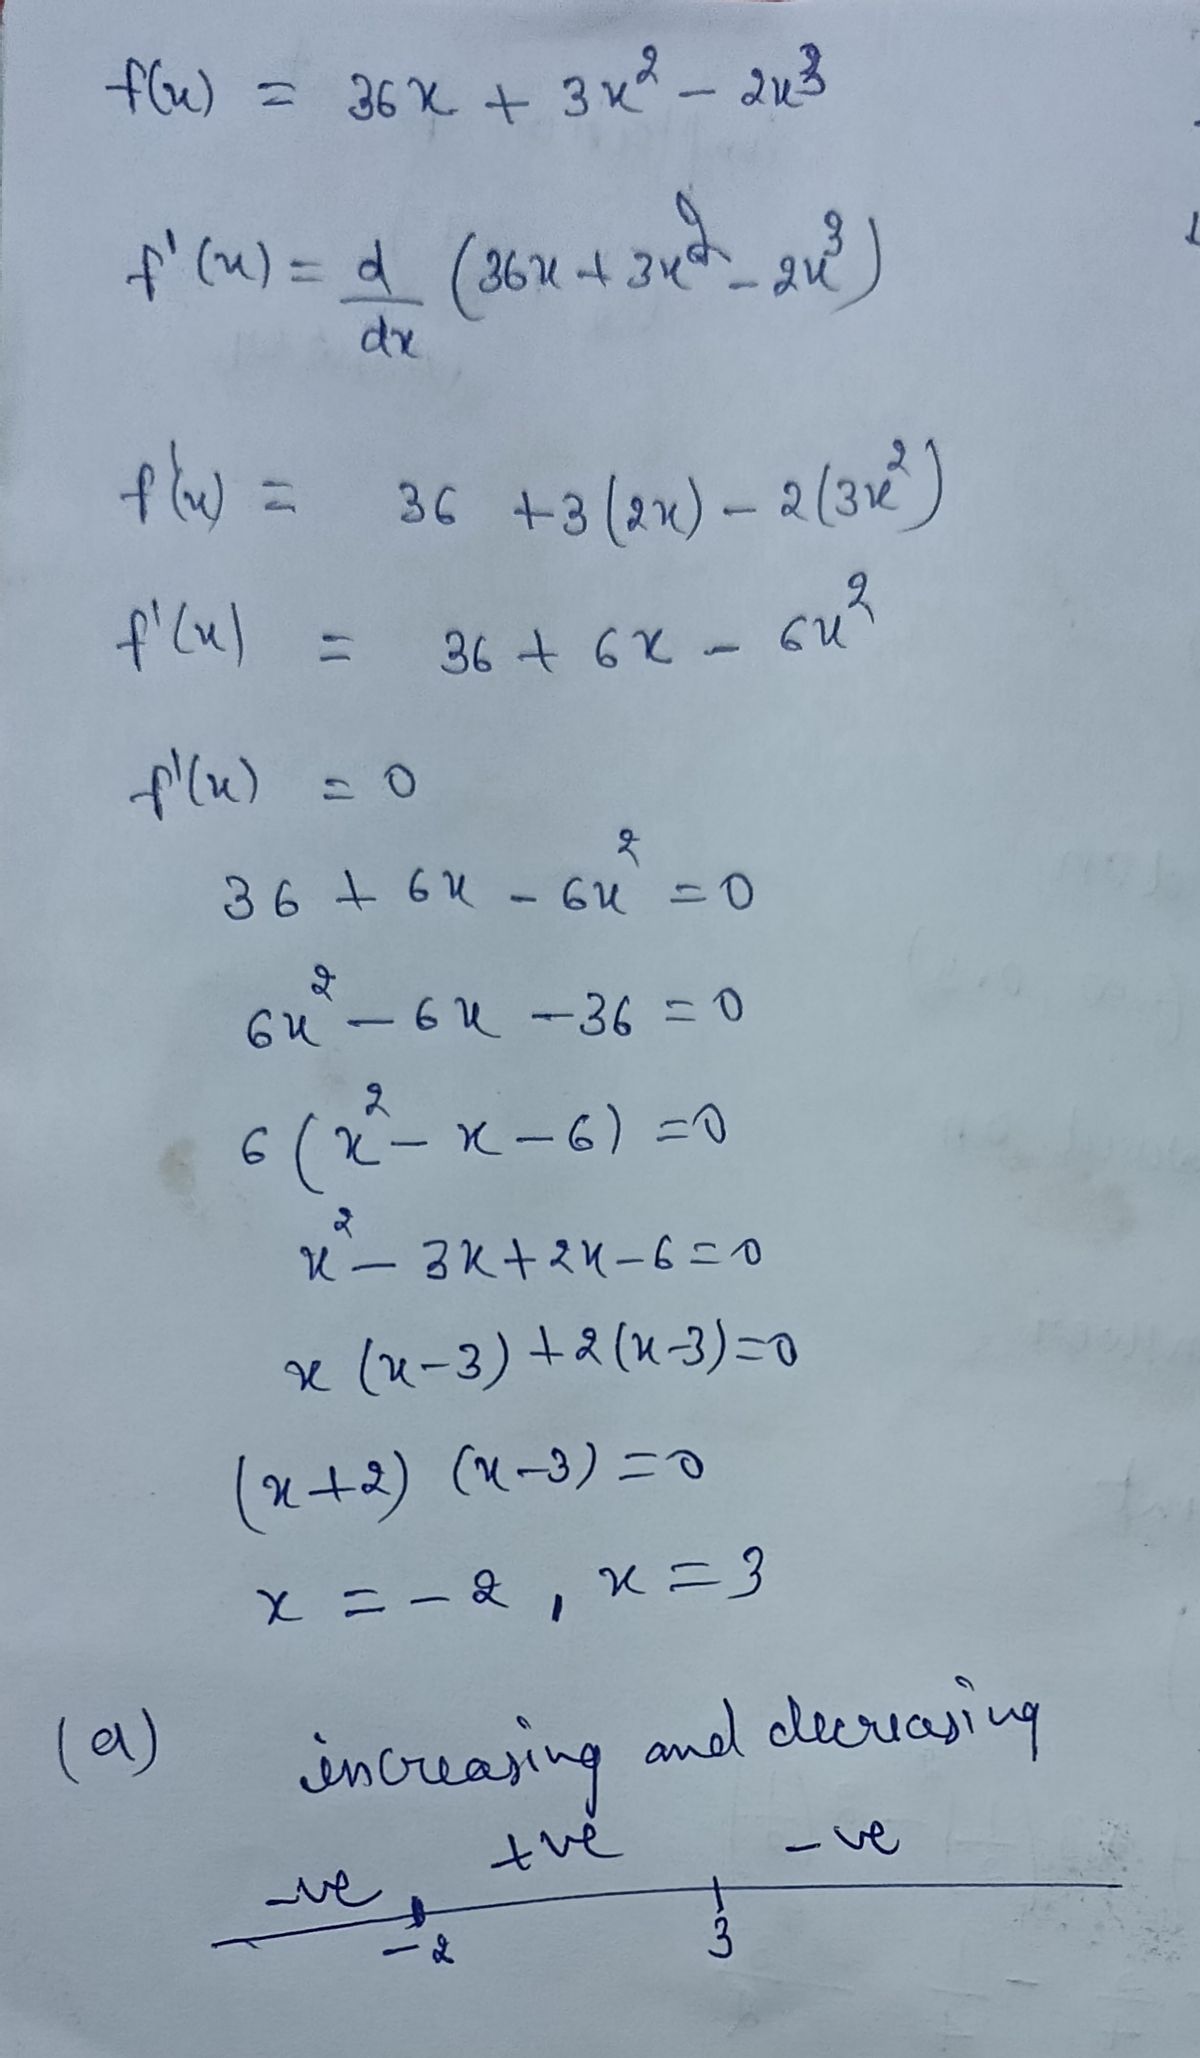 f(x) = 36x + 3x² - 2x³
f'(x) = d/dx (36x + 3x² - 2x³)
f'(x) = 36 + 3(2x) - 2(3x²)
f'(x) = 36 + 6x - 6x²
f'(x) = 0
36 + 6x - 6x² = 0
6x² - 6x - 36 = 0
6(x² - x - 6) = 0
x² - 3x + 2x - 6 = 0
x(x-3) + 2(x-3) = 0
(x+2) (x-3) = 0
x = -2, x = 3
(a) increasing and decreasing
-ve +ve -ve
-2 3